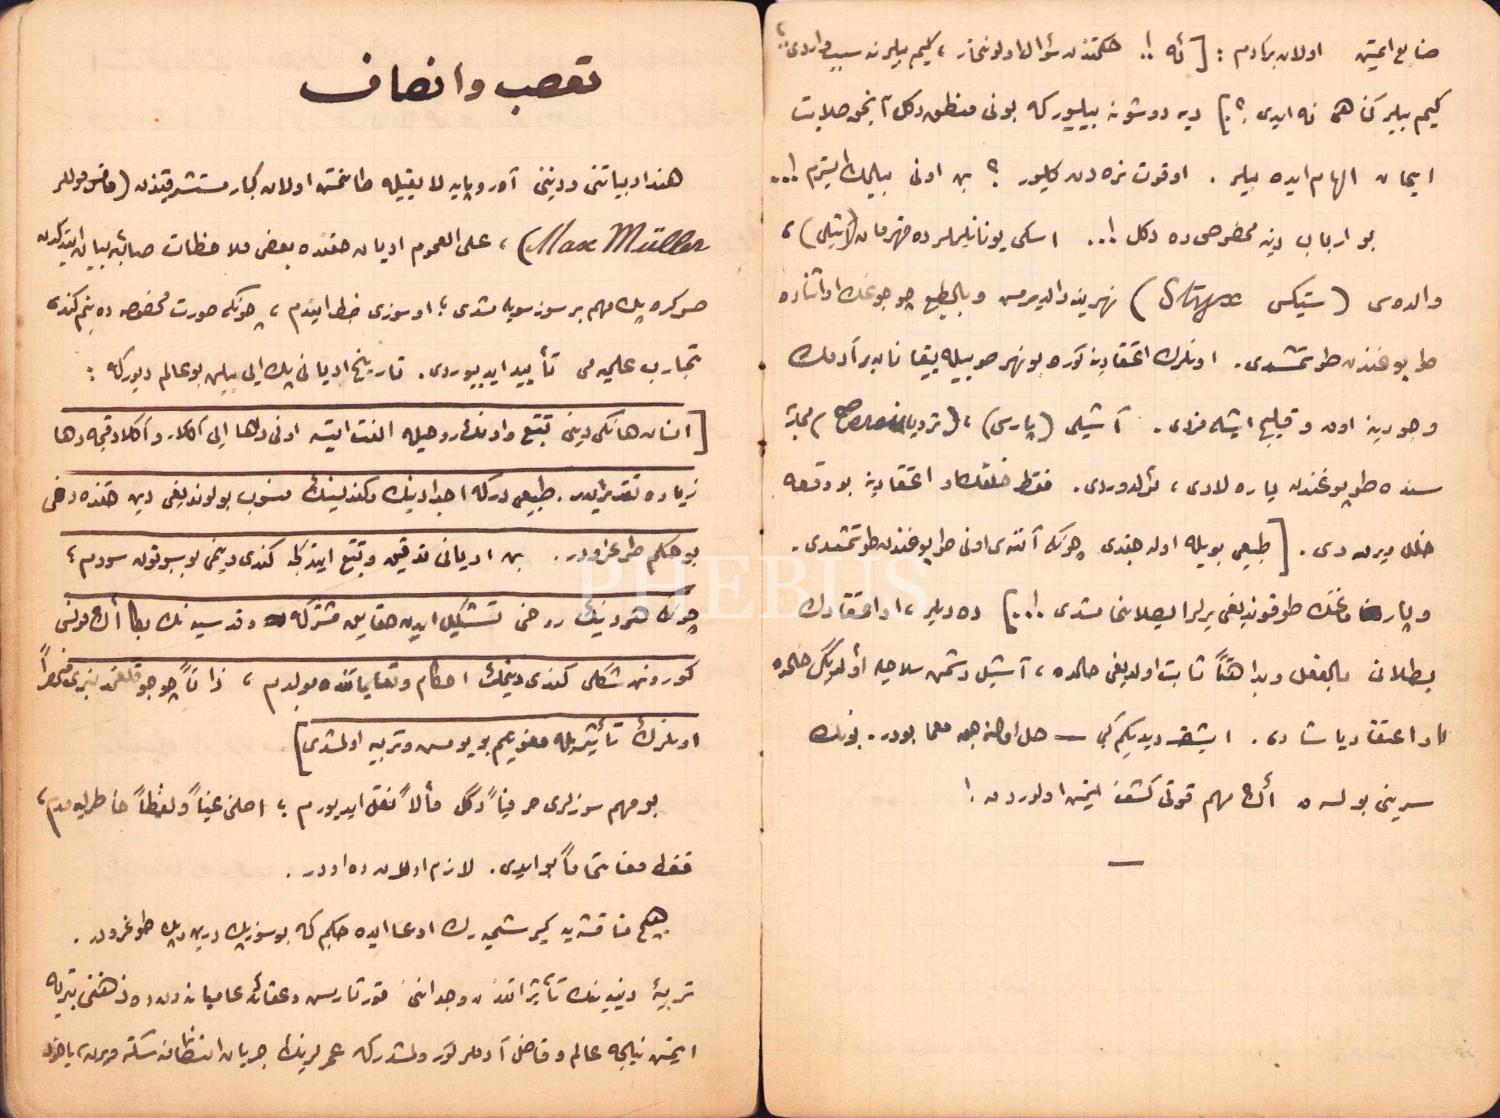 تعصب وانصاف
هند ادبیاتنی ودیننی آوروپایه لایقیله طانتمش اولان کبار مستشرقیندن (ماقس موللر
Max Müller) ، علی العموم ادیان حقنده بعض ملاحظات صائبه بیان ایتدکدن
صوکره پك مهم بر سوز سویله مشدی ؛ او سوزی ضبط ایتدم ، چونکه صورت مخصوصه ده بنم کندی
تجارب علمیه می تأیید ایدییوردی . تاریخ ادیانی پك ایی بیلن بو عالم دیورکه :
[ انسان هانکی دینی تتبع و اونك روحیله الفت ایتسه اونی دها ایی آکلار و آکلادقجه دها
زیاده تقدیر ایدر . طبیعیدرکه اجدادینك وکندیسنك منسوب بولوندیغی دین حقنده دخی
بو حکم طوغرودر . بن ادیانی تدقیق وتتبع ایتدکجه کندی دینمی بوسبوتون سودم ؛
چونکه هر دینك روحنی تشکیل ایدن حقایق مشترکه وقدسیه نك بکا أك مونس
کورونن شکلی کندی دینمك احکام وتعلیماتنده بولدم ، ذاتاً چوجوقلغمدنبری منحصراً
اونلرك تأثیریله معنویتم بویومش وتربیه اولمشدی ]
بو مهم سوزلری حرفیاً دکل مآلاً نقل ایدیورم ؛ اصلنی عیناً ولفظاً خاطرلایه مدم ،
فقط معنا تماماً بو ایدی . لازم اولان ده اودر .
هیچ مناقشه یه کیرشمیه رك ادعا ایده جکم که بو سوز پك درین وپك طوغرودر .
تربیۀ دینیه نك تأثیراتندن وجداننی قورتارمش وعقائد عامیانه دن ده ذهننی تبریه
ایتمش نیجه عالم وفاضل آدملر کورولمشدرکه عمرلرینك جریان انتظامنه سکته ویرن ، یاخود
ضایع ایتمش اولان بر آدم : [ نه !. حکمتندن سؤال اولونماز ، کیم بیلیر نه سبب واردی ؟
کیم بیلیر کناهم نه ایدی ؟. ] دیه دوشونه بیلییورکه بونی منطق دکل آنجق صلابت
ایمان الهام ایده بیلیر . او قوت نره دن کلیور ؟ بن اونی بیلمك ایسترم !...
بو ارباب دینه مخصوص ده دکل !.. اسکی یونانلیلرده قهرمان (آشیل) ،
والده سی (ستیکس Styx) نهرینه دالدیرمش وبالطبع چوجوغك او اثناده
طوپوغندن طوتمشدی . اونلرك اعتقادینه کوره بو نهر صوییله ییقانان بر آدمك
وجودینه اوق و قلیج ایشله مزدی . آشیلی (پاریس) ، (ترویا) محاربه
سنده طوپوغندن یاره لادی ، ئولدوردی . فقط خلقك او اعتقادینه بو وقعه
خلل ویرمدی . [ طبیعی بویله اوله جقدی چونکه آننه سی اونی طوپوغندن طوتمشدی .
وپارماغنك طوقوندیغی یرلر ایصلانمامشدی !.. ] ده دیلر ، او اعتقادك
بطلانی بالفعل وبداهةً ثابت اولدیغی حالده ، آشیل دشمن سلاحیله ئولدیکی حالده
او اعتقاد یاشادی . ایشته دیدیکم کبی — حل اولنه جق معما بودر . بونك
سرینی بولسه ق أك مهم قوتی کشف ایتمش اولوردق !